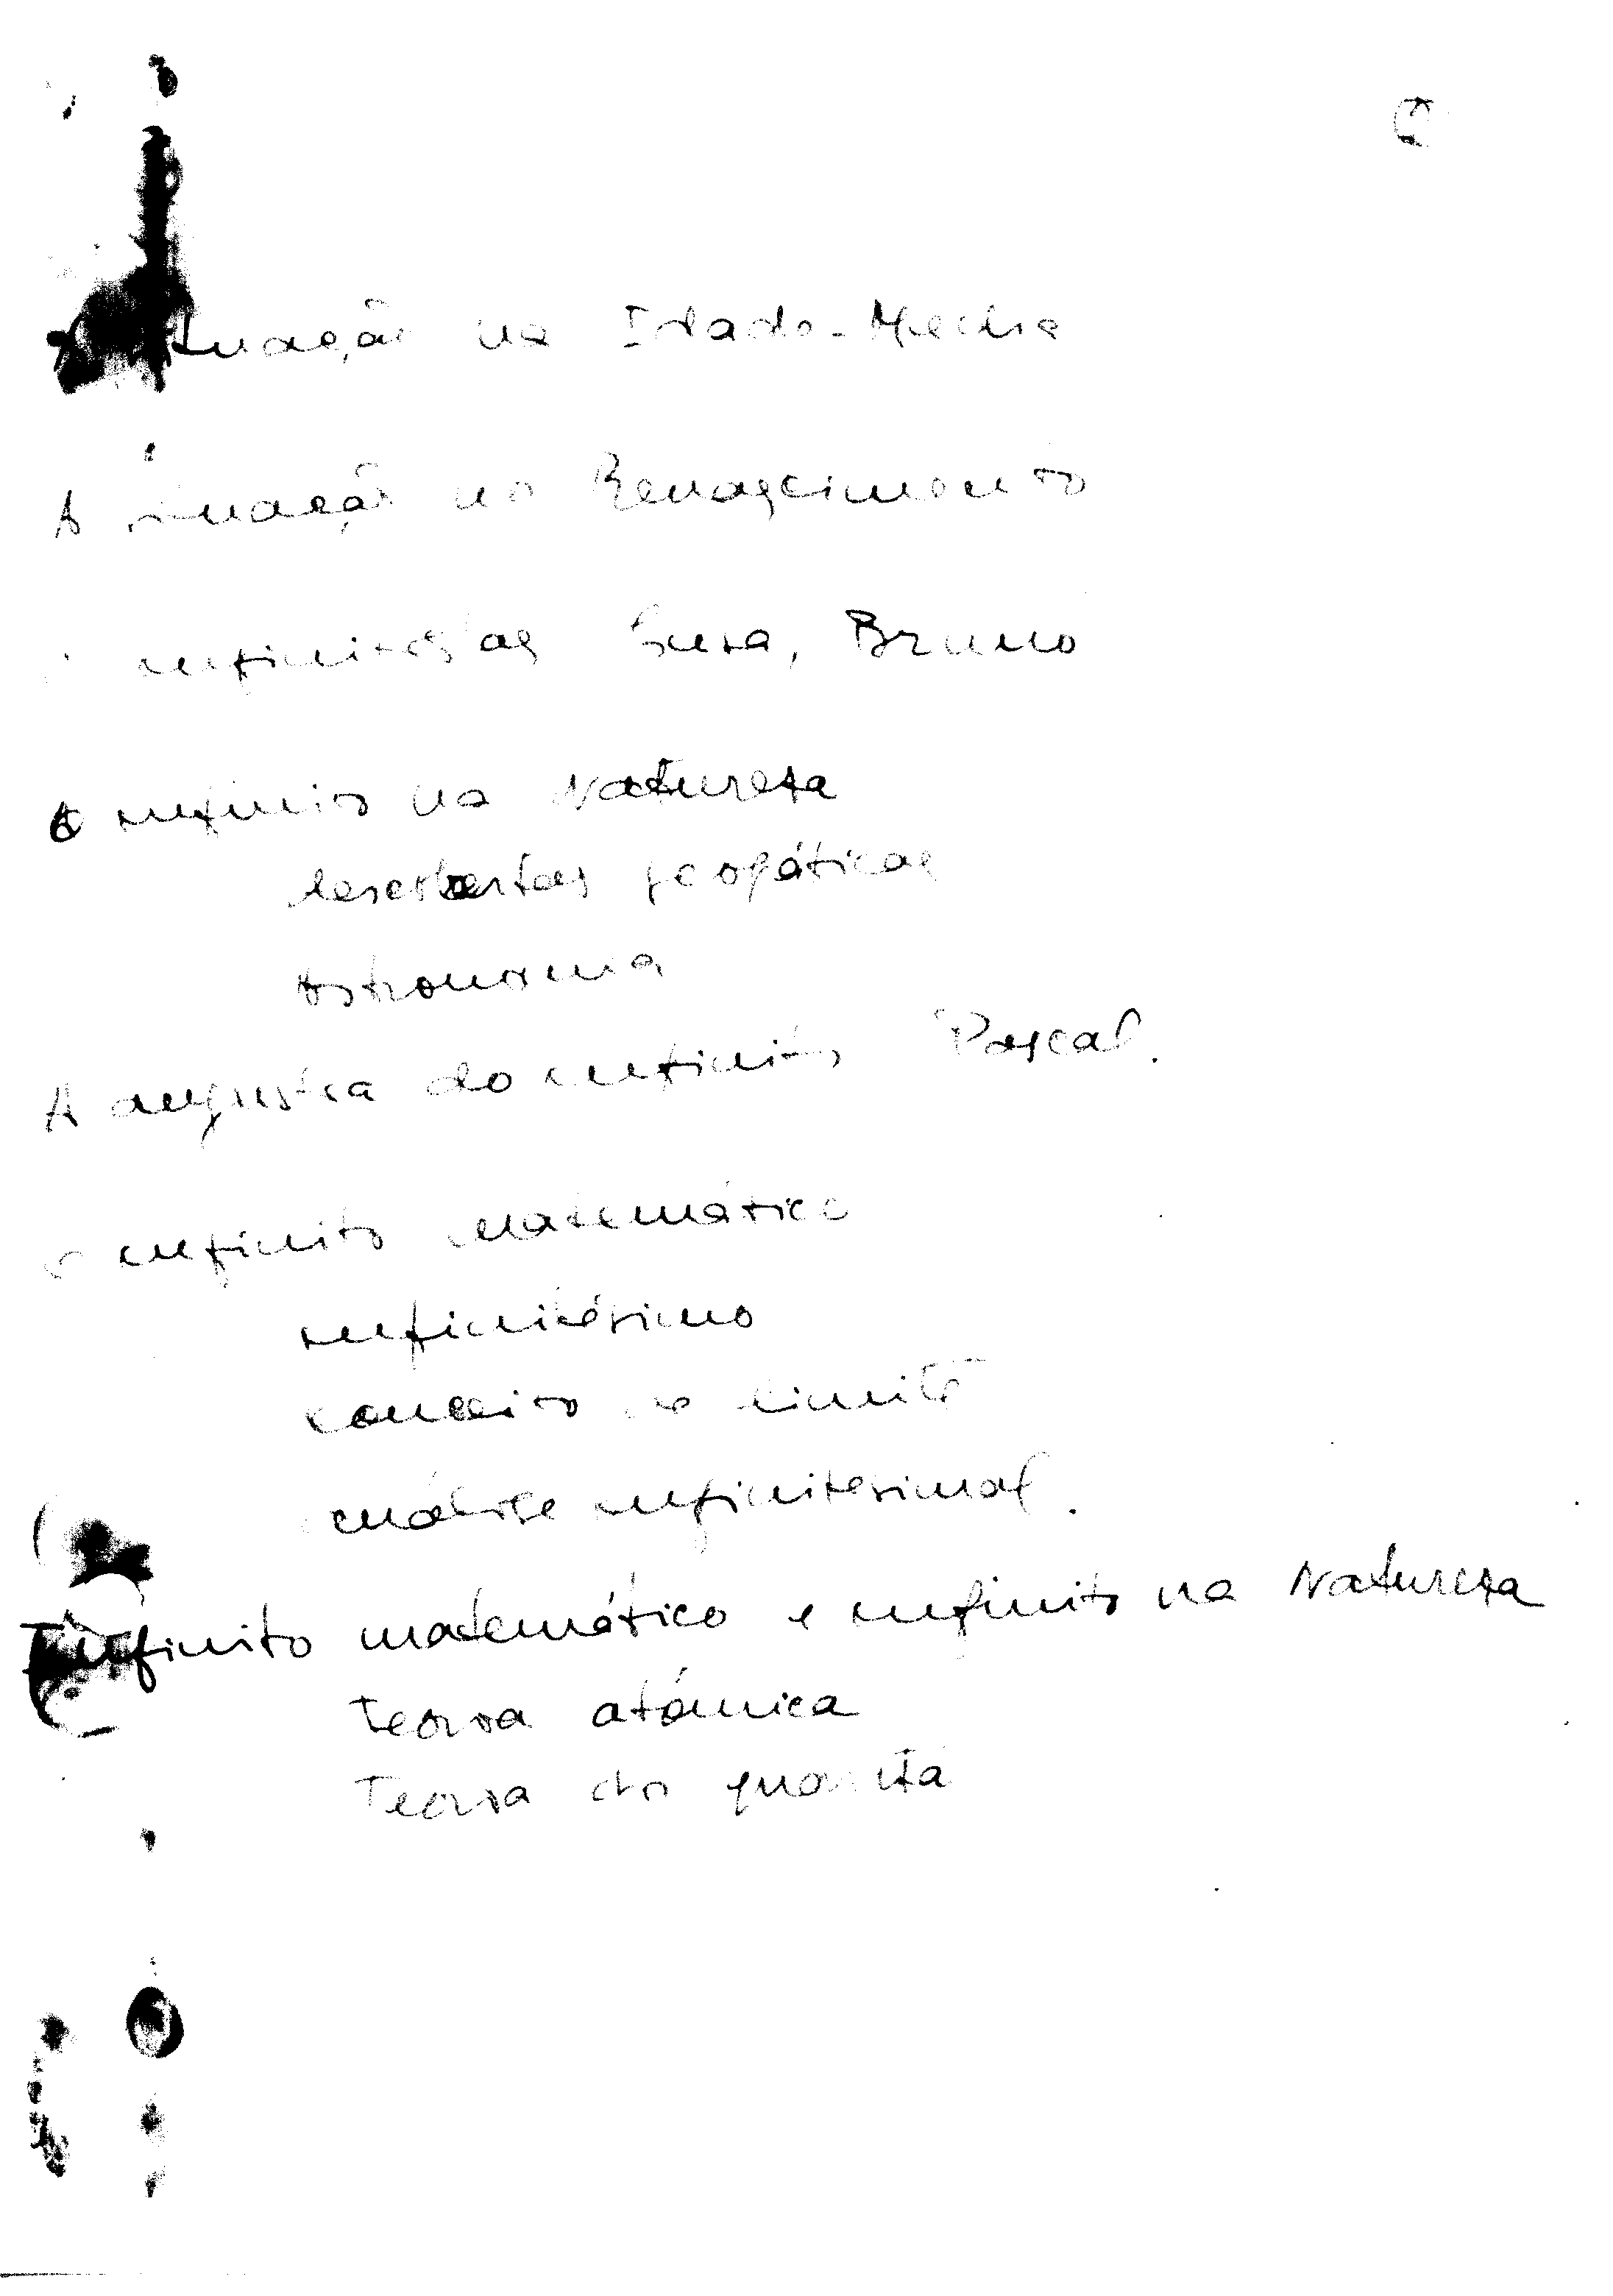 situação na Idade-Media
A situação no Renascimento
infinitistas Cusa, Bruno
O infinito na Natureza
descobertas geográficas
Astronomia
A angustia do infinito Pascal.
O infinito matemático
infinitésimo
conceito de limite
análise infinitesimal.
Infinito matemático e infinito na Natureza
Teoria atómica
Teoria dos quanta